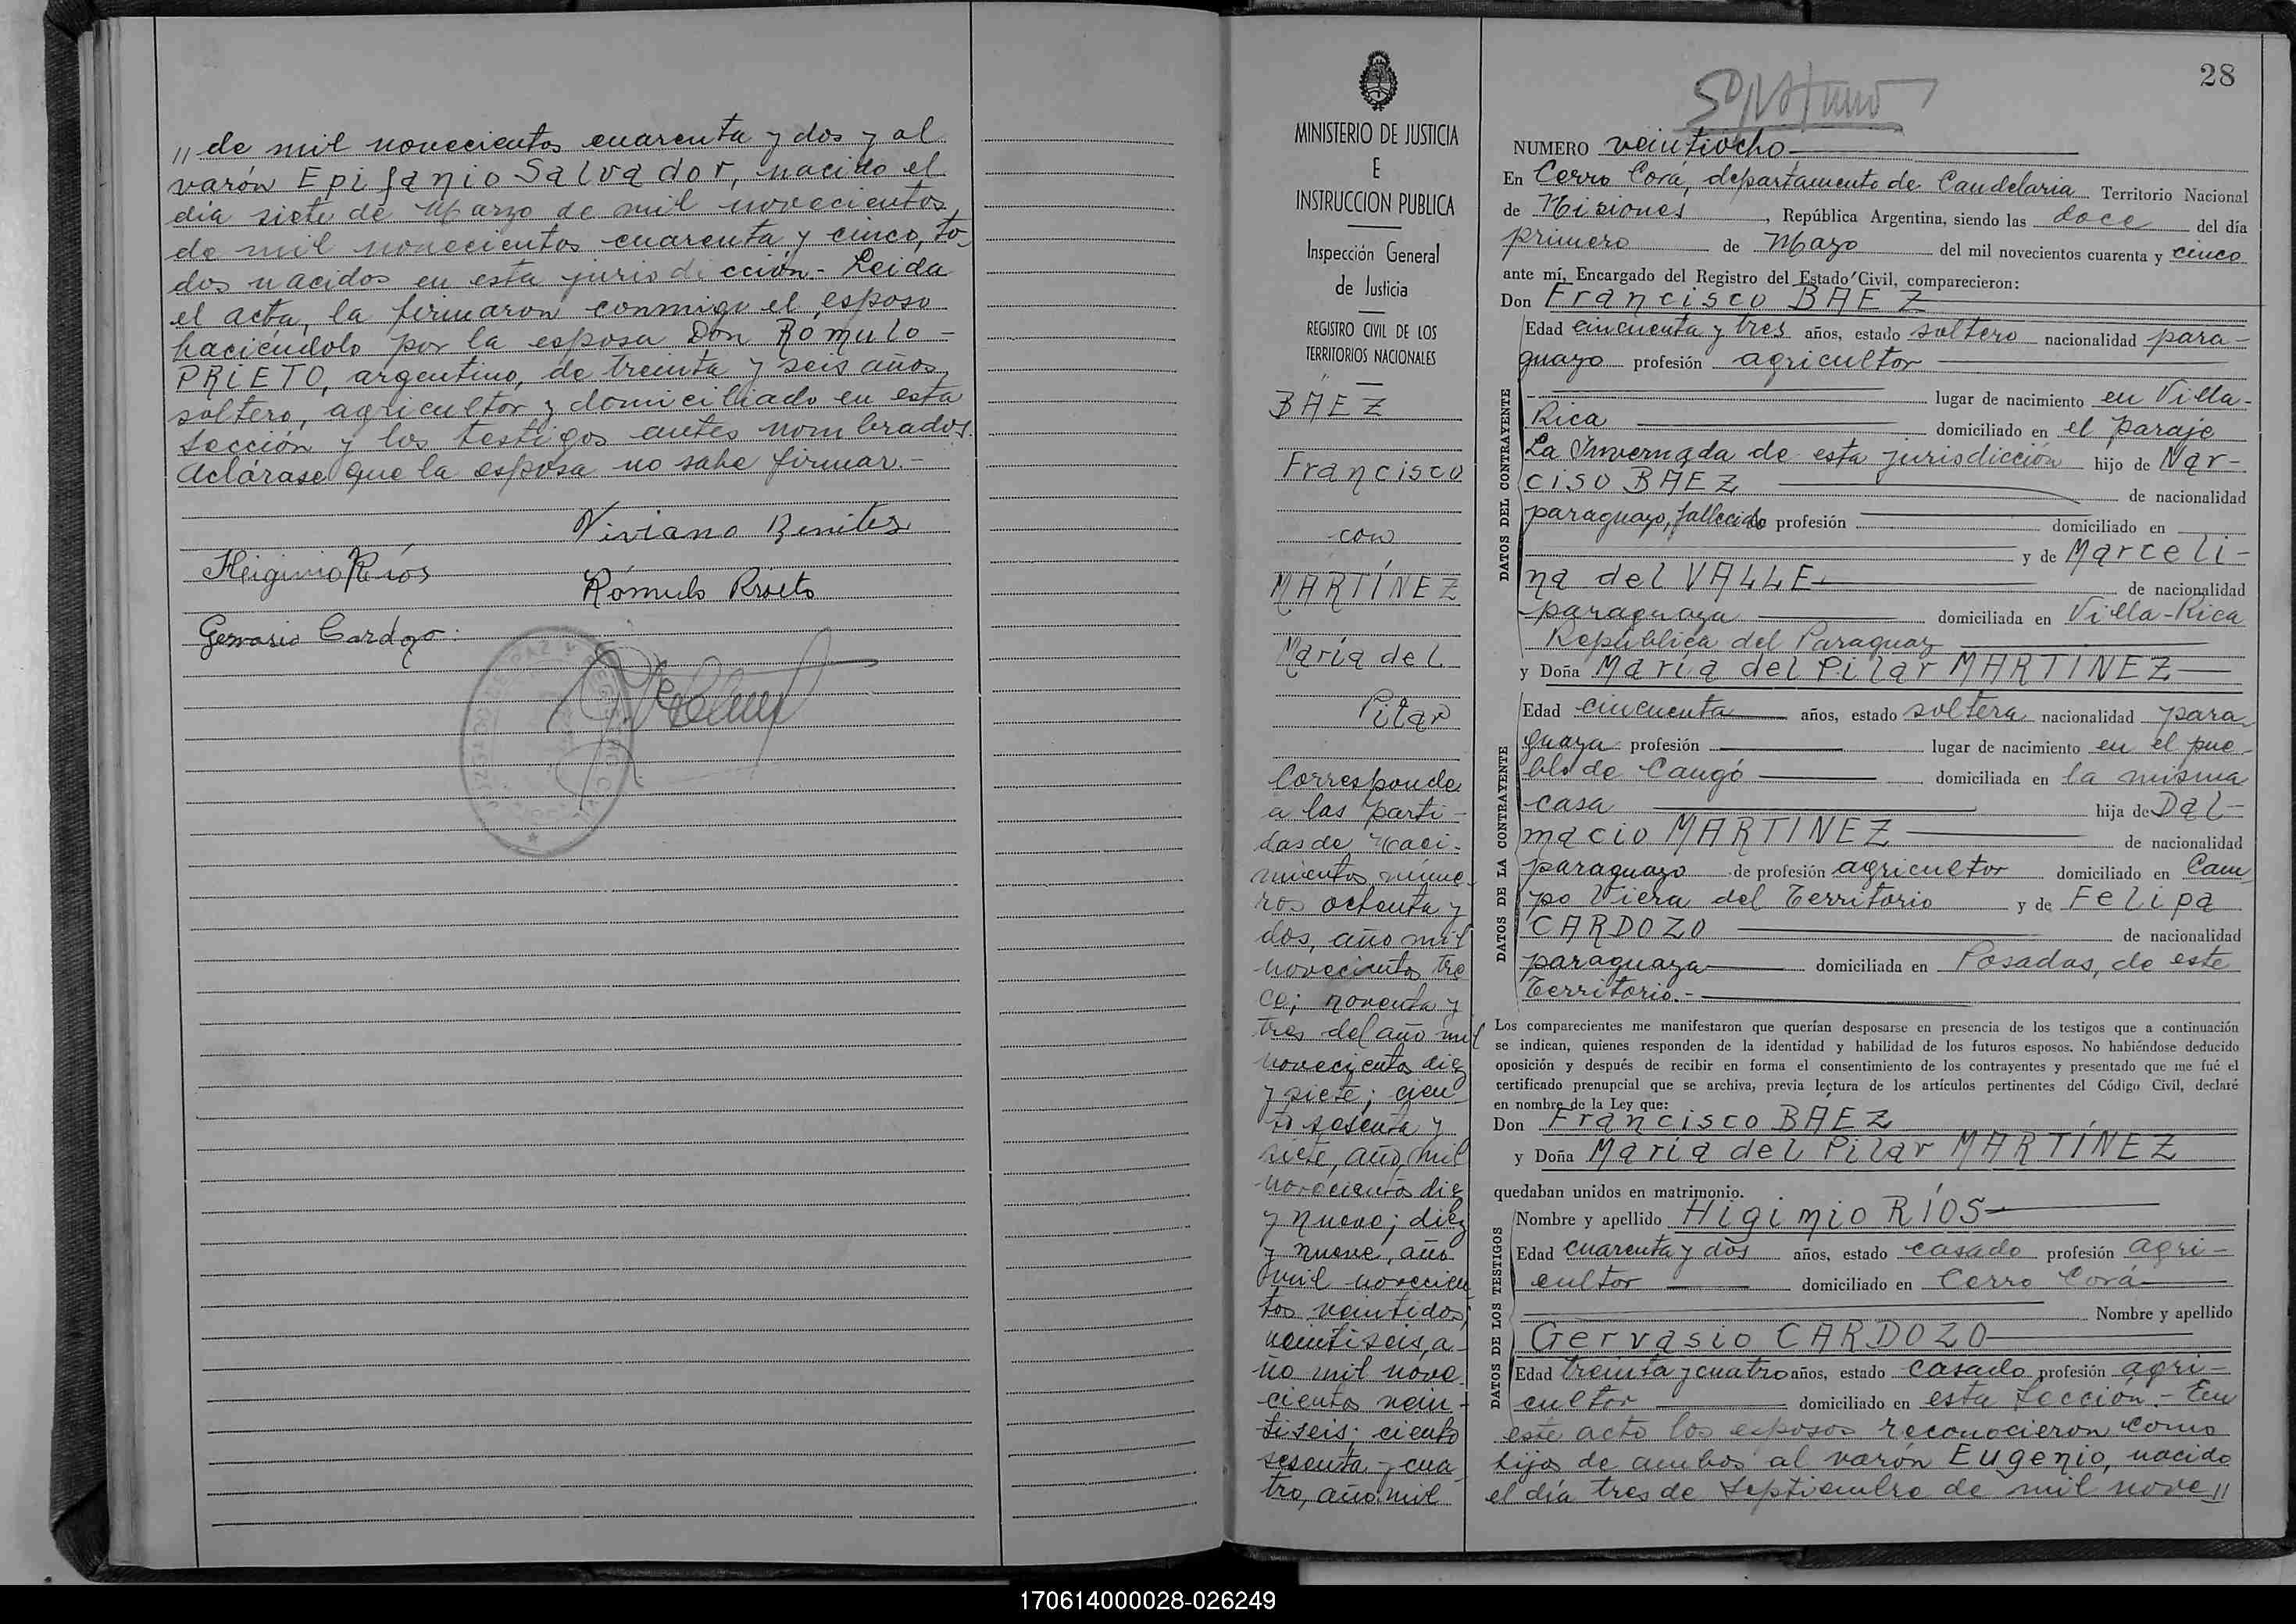 // de mil novecientos cuarenta y dos y al
varón Epifanio Salvador, nacido el
día siete de Marzo de mil novecientos
de mil novecientos cuarenta y cinco, to-
dos nacidos en esta jurisdicción.- Leida
el acta, la firmaron conmigo el esposo
haciéndolo por la esposa Don Rómulo -
PRIETO, argentino, de treinta y seis años,
soltero, agricultor y domiciliado en esta
Sección y los testigos antes nombrados.
Aclárase que la esposa no sabe firmar.-
Viviano Benitez
Heiginio Ríos
Rómulo Prieto
Gervasio Cardozo.
MINISTERIO DE JUSTICIA
E
INSTRUCCION PUBLICA
Inspección General
de Justicia
REGISTRO CIVIL DE LOS
TERRITORIOS NACIONALES
BAEZ
Francisco
con
MARTÍNEZ
María del
Pilar
Corresponde
a las parti-
das de naci-
mientos núme-
ros ochenta y
dos, año mil
novecientos tre
ce; noventa y
tres del año mil
novecientos diez
y siete; cien-
to sesenta y
siete, año mil
novecientos diez
y nueve; diez
y nueve, año
mil novecien
tos veintidos;
veintiseis, a-
ño mil nove
cientos vein-
tiseis; ciento
sesenta y cua
tro, año mil
28
NUMERO veintiocho
En Cerro Corá, departamento de Candelaria Territorio Nacional
de Misiones, República Argentina, siendo las doce del día
primero de Mayo del mil novecientos cuarenta y cinco
ante mí, Encargado del Registro del Estado Civil, comparecieron:
Don Francisco BAEZ
DATOS DEL CONTRAYENTE
Edad cincuenta y tres años, estado soltero nacionalidad para-
guayo profesión agricultor
lugar de nacimiento en Villa-
Rica domiciliado en el paraje
La Invernada de esta jurisdicción hijo de Nar-
ciso BAEZ de nacionalidad
paraguayo, fallecido profesión domiciliado en
y de Marceli-
na del VALLE de nacionalidad
paraguaya domiciliada en Villa-Rica
República del Paraguay
y Doña María del Pilar MARTINEZ
DATOS DE LA CONTRAYENTE
Edad cincuenta años, estado soltera nacionalidad para-
guaya profesión lugar de nacimiento en el pue-
blo de Caugó domiciliada en la misma
casa hija de Dal-
macio MARTINEZ de nacionalidad
paraguayo de profesión agricultor domiciliado en Cam
po Viera del Territorio y de Felipa
CARDOZO de nacionalidad
paraguaya domiciliada en Posadas, de este
Territorio.-
Los comparecientes me manifestaron que querían desposarse en presencia de los testigos que a continuación
se indican, quienes responden de la identidad y habilidad de los futuros esposos. No habiéndose deducido
oposición y después de recibir en forma el consentimiento de los contrayentes y presentado que me fué el
certificado prenupcial que se archiva, previa lectura de los artículos pertinentes del Código Civil, declaré
en nombre de la Ley que:
Don Francisco BÁEZ
y Doña María del Pilar MARTÍNEZ
quedaban unidos en matrimonio.
DATOS DE LOS TESTIGOS
Nombre y apellido Higinio RÍOS
Edad cuarenta y dos años, estado casado profesión agri-
cultor domiciliado en Cerro Corá
Nombre y apellido
Gervasio CARDOZO
Edad treinta y cuatro años, estado casado profesión agri-
cultor domiciliado en esta Sección.- En
este acto los esposos reconocieron como
hijos de ambos al varón Eugenio, nacido
el día tres de Septiembre de mil nove //
170614000028-026249